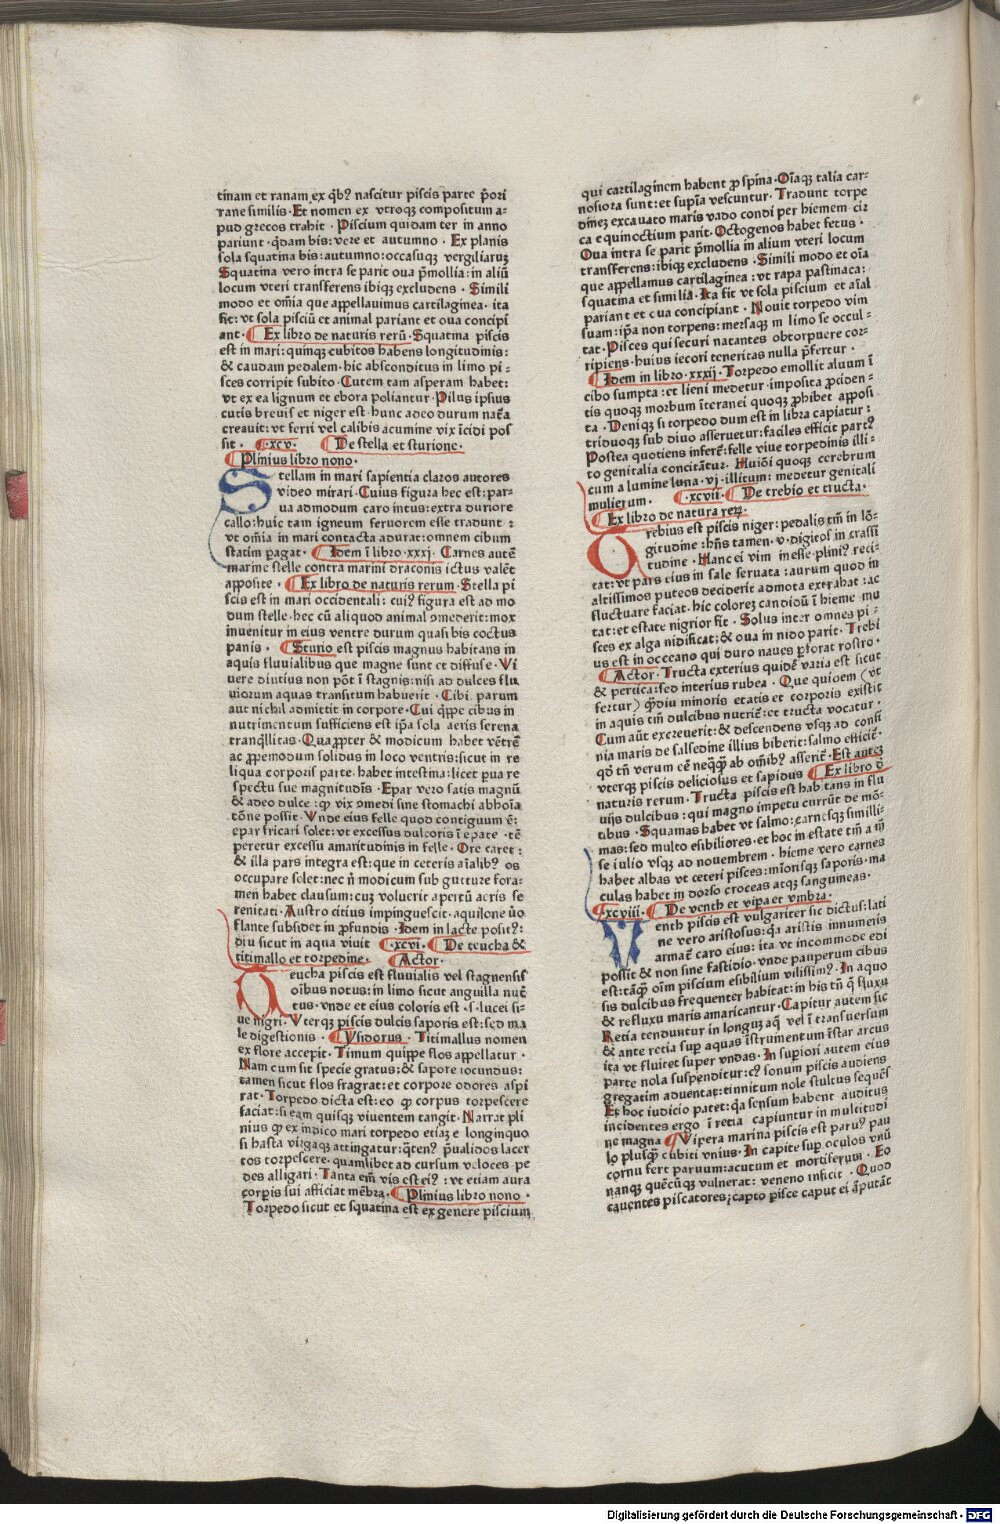 tinam et ranam ex q̄bꝰ nascitur piscis parte p̄ori
rane similis · Et nomen ex vtroqꝫ compositum a-
pud grecos trahit · Piscium quidam ter in anno
pariunt · q̄dam bis: vere et autumno · Ex planis
sola squatina bis: autumno: occasuqꝫ vergiliarūꝫ
Squatina vero intra se parit oua p̄mollia: in aliū
locum vteri transferens ibiqꝫ excludens · Simili
modo et om̄ia que appellauimus cartilaginea · ita
fit: vt sola pisciū et animal pariant et oua concipi
ant · Ex libro de naturis rerū · Squatina piscis
est in mari: quinqꝫ cubitos habens longitudinis:
& caudam pedalem · hic absconditus in limo pi-
sces corripit subito · Cutem tam asperam habet:
vt ex ea lignum et ebora poliantur · Pilus ipsius
cutis breuis et niger est · hunc adeo durum nat̄a
creauit: vt ferri vel calibis acumine vix īcidi pos
sit · xcv · De stella et sturione ·
Plinius libro nono ·
Stellam in mari sapientia claros auctores
video mirari · Cuius figura hec est: par-
ua admodum caro intus: extra duriore
callo: huic tam igneum feruorem esse tradunt :
vt om̄ia in mari contacta adurat: omnem cibum
statim ꝑagat · Idem ī libro · xxxj · Carnes autē
marine stelle contra marini draconis ictus valēt
apposite · Ex libro de naturis rerum · Stella pi
scis est in mari occidentali: cuiꝰ figura est ad mo
dum stelle · hec cū aliquod animal ꝯmederit: mox
inuenitur in eius ventre durum quasi bis coctus
panis · Sturio est piscis magnus habitans in
aquis fluuialibus que magne sunt et diffuse · Vi
uere diutius non pōt ī stagnis: nisi ad dulces flu
uiorum aquas transitum habuerit · Cibi parum
aut nichil admittit in corpore · Cui q̄ppe cibus in
nutrimentum sufficiens est ip̄a sola aeris serena
tranq̄llitas · Quapropter & modicum habet vētrē
ac ꝓpemodum solidus in loco ventris: sicut in re
liqua corporis parte · habet intestina: licet ꝑua re
spectu sue magnitudis · Epar vero satis magnū
& adeo dulce : qꝫ vix ꝯmedi sine stomachi abhoīa
tōne possit · Vnde eius felle quod contiguum ē:
epar fricari solet: vt excessus dulcoris ī epate · tē
peretur excessu amaritudinis in felle · Ore caret :
& illa pars integra est: que in ceteris aīalibꝰ os
occupare solet: nec n̄ modicum sub gutture fora-
men habet clausum: cuꝫ voluerit apertū aeris se
renitati · Austro citius impinguescit · aquilone v̄o
flante subsidet in ꝓfundis · Idem in lacte positꝰ:
diu sicut in aqua viuit · xcvi · De teucha &
titimallo et torpedine · Actor ·
Teucha piscis est fluuialis vel stagnensis
oībus notus: in limo sicut anguilla nut̄
tus · vnde et eius coloris est · ſ · lucei si-
ue nigri · Vterqꝫ piscis dulcis saporis est: sed ma
le digestionis · Ysidorus · Titimallus nomen
ex flore accepit · Timum quippe flos appellatur ·
Nam cum sit specie gratus: & sapore iocundus:
tamen sicut flos fragrat: et corpore odores aspi
rat · Torpedo dicta est: eo qꝫ corpus torpescere
faciat: si eam quisqꝫ viuentem tangit · Narrat pli
nius qꝫ ex indico mari torpedo etiaꝫ e longinquo
si hasta virgaqꝫ attingatur: q̄tenꝰ p̄ualidos lacer
tos torpescere · quamlibet ad cursum veloces pe
des alligari · Tanta em̄ vis est eiꝰ : vt etiam aura
corpis sui afficiat mēbra · Plinius libro nono ·
Torpedo sicut et squatina est ex genere piscium
qui cartilaginem habent ꝓ spina · Oīaqꝫ talia car-
nosiora sunt: et supīa vescuntur · Tradunt torpe
dineꝫ excauato maris vado condi per hiemem · cir
ca equinoctium parit · Octogenos habet fetus ·
Oua intra se parit p̄mollia in alium vteri locum
transferens: ibiqꝫ excludens · Simili modo et oīa
que appellamus cartilaginea : vt rapa pastinaca:
squatina et similia · Ita fit vt sola piscium et aīal
pariant et oua concipiant · Nouit torpedo vim
suam: ip̄a non torpens: mersaqꝫ in limo se occul-
tat · Pisces qui securi natantes obtorpuere cor-
ripiens · huius iecori teneritas nulla p̄fertur ·
Idem in libro · xxxij · Torpedo emollit aluum ī
cibo sumpta: et lieni medetur · imposita ꝓciden-
tis quoqꝫ morbum īteranei quoqꝫ ꝓhibet apposi
ta · Deniqꝫ si torpedo dum est in libra capiatur:
triduoqꝫ sub diuo asseruetur: faciles efficit partꝰ
Postea quotiens inferē: felle viue torpedinis illi-
to genitalia concitātur · Huiōi quoqꝫ cerebrum
cum alumine luna · vj · illitum: medetur genitali
mulierum · xcvii · De trebio et tructa ·
Ex libro de natura reꝝ ·
Trebius est piscis niger: pedalis tm̄ in lō-
gitudine : hn̄s tamen · v · digitos in crassi
tudine · Hanc ei vim inesse plinīꝰ reci-
tat: vt pars eius in sale seruata : aurum quod in
altissimos puteos deciderit admota extrahat : ac
fluctuare faciat · hic coloreꝫ candidū ī hieme mu
tat: et estate nigrior fit · Solus inter omnes pi-
sces ex alga nidificat: & oua in nido parit · Trebi
us est in occeano qui duro naues ꝑforat rostro ·
Actor · Tructa exterius quidē varia est sicut
& pertica: sed interius rubea · Que quidem (vt
fertur) q̄diu minoris etatis et corporis existit
in aquis tm̄ dulcibus nutriē: et tructa vocatur ·
Cum aūt excreuerit: & descendens vsqꝫ ad confi
nia maris de salsedine illius biberit: salmo efficiē ·
qd̄ tn̄ verum cē neq̄qꝫ ab om̄ibꝰ asserit̄ · Est auteꝫ
vterqꝫ piscis deliciosus et sapidus Ex libro d̄
naturis rerum · Tructa piscis est habitans in flu
uijs dulcibus : qui magno impetu currūt de mō-
tibus · Squamas habet vt salmo: carnesqꝫ similli-
mas: sed multo esibiliores · et hoc in estate tm̄ a m̄
se iulio vsqꝫ ad nouembrem · hieme vero carnes
habet albas vt ceteri pisces: mīorisqꝫ saporis · ma
culas habet in dorso croceas atqꝫ sanguineas ·
xcviii · De venth et vip̄a et vmbra ·
Venth piscis est vulgariter sic dictus: lati
ne vero aristosus: q̄a aristis innumeris
armat̄ caro eius: ita vt incommode edi
possit & non sine fastidio · vnde pauperum cibus
est: tāqꝫ oīm piscium esibilium vilissimꝰ · In aquo
sis dulcibus frequenter habitat: in his tn̄ q̄ fluxu
& refluxu maris amaricantur · Capitur autem sic
Retia tenduntur in longuꝫ aq̄ vel ī transuersum
& ante retia suꝑ aquas īstrumentum īstar arcus
ita vt fluitet super vndas · In suꝑiori autem eius
parte nola suspenditur: cꝰ sonum piscis audiens
gregatim aduentat: tinnitum nole stultus sequēs
Et hoc iudicio patet: q̄a sensum habent auditus
incidentes ergo ī retia capiuntur in multitudi
ne magna Vipera marina piscis est paruꝰ pau
lo plusqꝫ cubiti vnius · In capite suꝑ oculos vnū
cornu fert paruum: acutum et mortiferum · Eo
nanqꝫ quēcūqꝫ vulnerat: veneno inficit · Quod
cauentes piscatores: capto ꝑisce caput ei āputāt
Digitalisierung gefördert durch die Deutsche Forschungsgemeinschaft - DFG